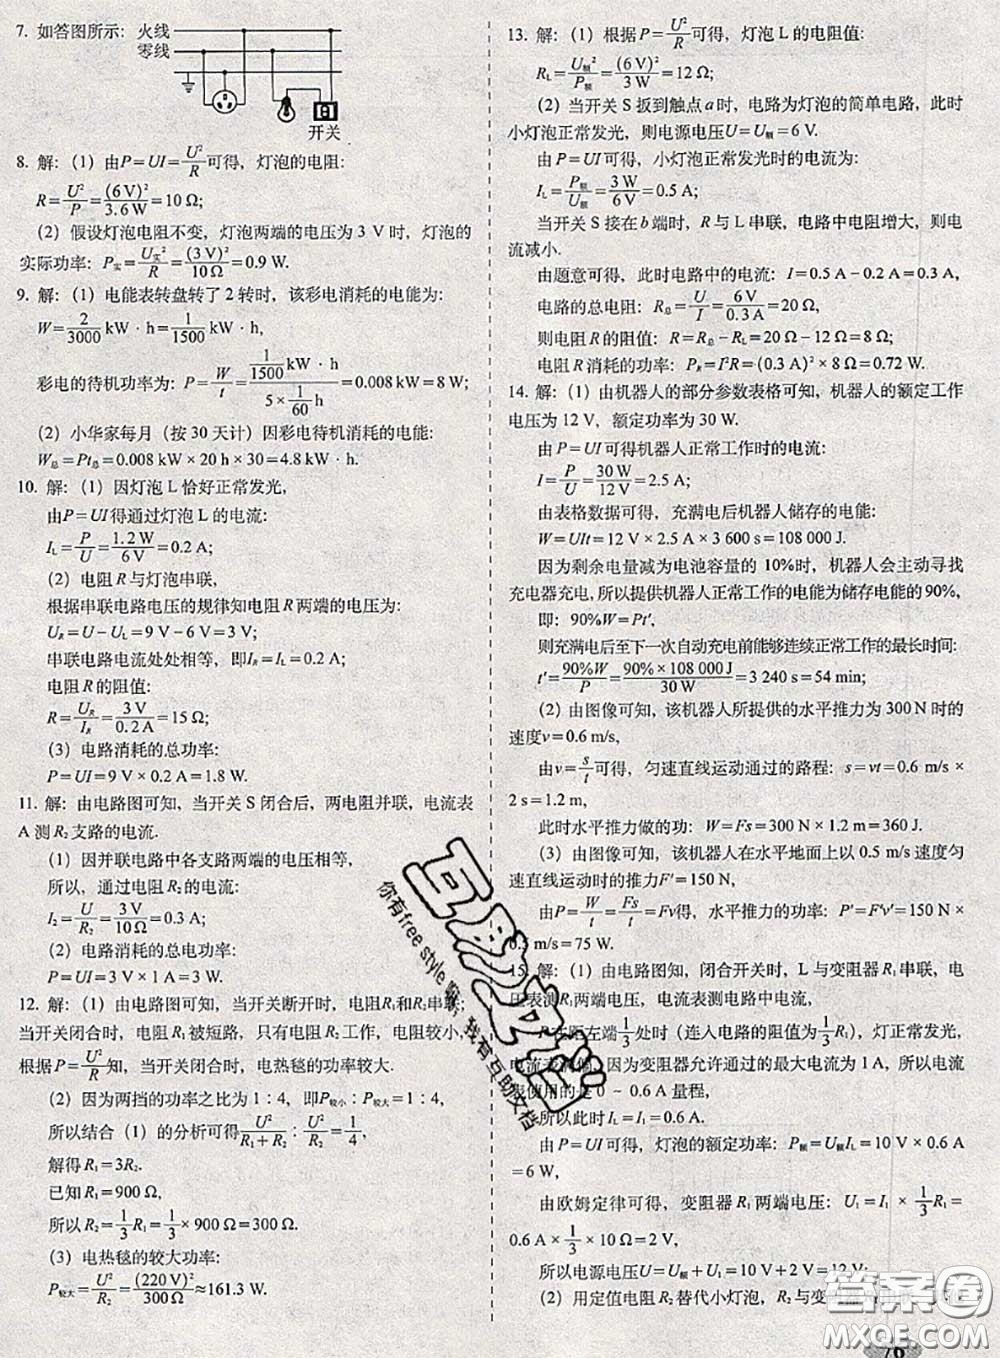 7. 如答图所示：火线
零线
开关
8. 解：(1) 由P=UI=U²/R可得，灯泡的电阻：
R=U²/P=(6 V)²/3.6 W=10 Ω;
(2) 假设灯泡电阻不变，灯泡两端的电压为 3 V 时，灯泡的
实际功率：P实=U实²/R=(3 V)²/10 Ω=0.9 W.
9. 解：(1) 电能表转盘转了 2 转时，该彩电消耗的电能为：
W=2/3000 kW·h=1/1500 kW·h,
彩电的待机功率为：P=W/t=(1/1500 kW·h)/(5×1/60 h)=0.008 kW=8 W;
(2) 小华家每月（按 30 天计）因彩电待机消耗的电能：
W总=Pt总=0.008 kW×20 h×30=4.8 kW·h.
10. 解：(1) 因灯泡 L 恰好正常发光，
由P=UI得通过灯泡 L 的电流：
IL=P/U=1.2 W/6 V=0.2 A;
(2) 电阻 R与灯泡串联，
根据串联电路电压的规律知电阻 R两端的电压为：
UR=U-UL=9 V-6 V=3 V;
串联电路电流处处相等，即IR=IL=0.2 A;
电阻 R的阻值：
R=UR/IR=3 V/0.2 A=15 Ω;
(3) 电路消耗的总功率：
P=UI=9 V×0.2 A=1.8 W.
11. 解：由电路图可知，当开关 S 闭合后，两电阻并联，电流表
A 测R2支路的电流.
(1) 因并联电路中各支路两端的电压相等，
所以，通过电阻 R2的电流：
I2=U/R2=3 V/10 Ω=0.3 A;
(2) 电路消耗的总电功率：
P=UI=3 V×0.5 A=1.5 W.
12. 解：(1) 由电路图可知，当开关断开时，电阻R1和R2串联；
当开关闭合时，电阻 R1被短路，只有电阻 R2工作，电阻较小，
根据P=U²/R知，当开关闭合时，电热毯的功率较大.
(2) 因为两挡的功率之比为 1∶4，即P较小∶P较大=1∶4，
所以结合（1）的分析可得U²/(R1+R2)∶U²/R2=1/4，
解得 R1=3R2.
已知R1=900 Ω,
所以 R2=1/3R1=1/3×900 Ω=300 Ω.
(3) 电热毯的较大功率：
P较大=U²/R2=(220 V)²/300 Ω≈161.3 W.
13. 解：(1) 根据P=U²/R可得，灯泡 L 的电阻值：
RL=U额²/P额=(6 V)²/3 W=12 Ω;
(2) 当开关 S 扳到触点a时，电路为灯泡的简单电路，此时
小灯泡正常发光，则电源电压U=U额=6 V.
由P=UI可得，小灯泡正常发光时的电流为：
IL=P额/U额=3 W/6 V=0.5 A;
当开关 S 接在b端时，R与 L 串联，电路中电阻增大，则电
流减小.
由题意可得，此时电路中的电流：I=0.5 A-0.2 A=0.3 A,
电路的总电阻：R总=U/I=6 V/0.3 A=20 Ω,
则电阻 R的阻值：R=R总-RL=20 Ω-12 Ω=8 Ω;
电阻 R消耗的功率：PR=I²R=(0.3 A)²×8 Ω=0.72 W.
14. 解：(1) 由机器人的部分参数表格可知，机器人的额定工作
电压为 12 V，额定功率为 30 W.
由P=UI可得机器人正常工作时的电流：
I=P/U=30 W/12 V=2.5 A;
由表格数据可得，充满电后机器人储存的电能：
W=UIt=12 V×2.5 A×3 600 s=108 000 J.
因为剩余电量减为电池容量的 10%时，机器人会主动寻找
充电器充电，所以提供机器人正常工作的电能为储存电能的 90%，
即：90%W=Pt′，
则充满电后至下一次自动充电前能够连续正常工作的最长时间：
t′=90%W/P=90%×108 000 J/30 W=3 240 s=54 min;
(2) 由图像可知，该机器人所提供的水平推力为 300 N时的
速度v=0.6 m/s,
由v=s/t可得，匀速直线运动通过的路程：s=vt=0.6 m/s×
2 s=1.2 m,
此时水平推力做的功：W=Fs=300 N×1.2 m=360 J;
(3) 由图像可知，该机器人在水平地面上以 0.5 m/s 速度匀
速直线运动时的推力F′=150 N,
由P=W/t=Fs/t=Fv得，水平推力的功率：P′=F′v′=150 N×
0.5 m/s=75 W.
15. 解：(1) 由电路图知，闭合开关时，L 与变阻器 R1串联，电
压表测R1两端电压，电流表测电路中电流，
P在距左端1/3处时（连入电路的阻值为1/3R1），灯正常发光，
电流表满偏，因为变阻器允许通过的最大电流为 1 A，所以电流
表使用的是 0 ~ 0.6 A 量程，
所以此时 IL=I1=I=0.6 A.
由 P=UI 可得，灯泡的额定功率：P额=U额IL=10 V×0.6 A
=6 W,
由欧姆定律可得，变阻器 R1 两端电压：U1=I1×1/3R1=
0.6 A×1/3×10 Ω=2 V,
所以电源电压U=U额+U1=10 V+2 V=12 V;
(2) 用定值电阻 R2替代小灯泡，R2与变阻器
76
互助文档
你有free style 啊，我有互助文档
答案圈
MXQE.COM